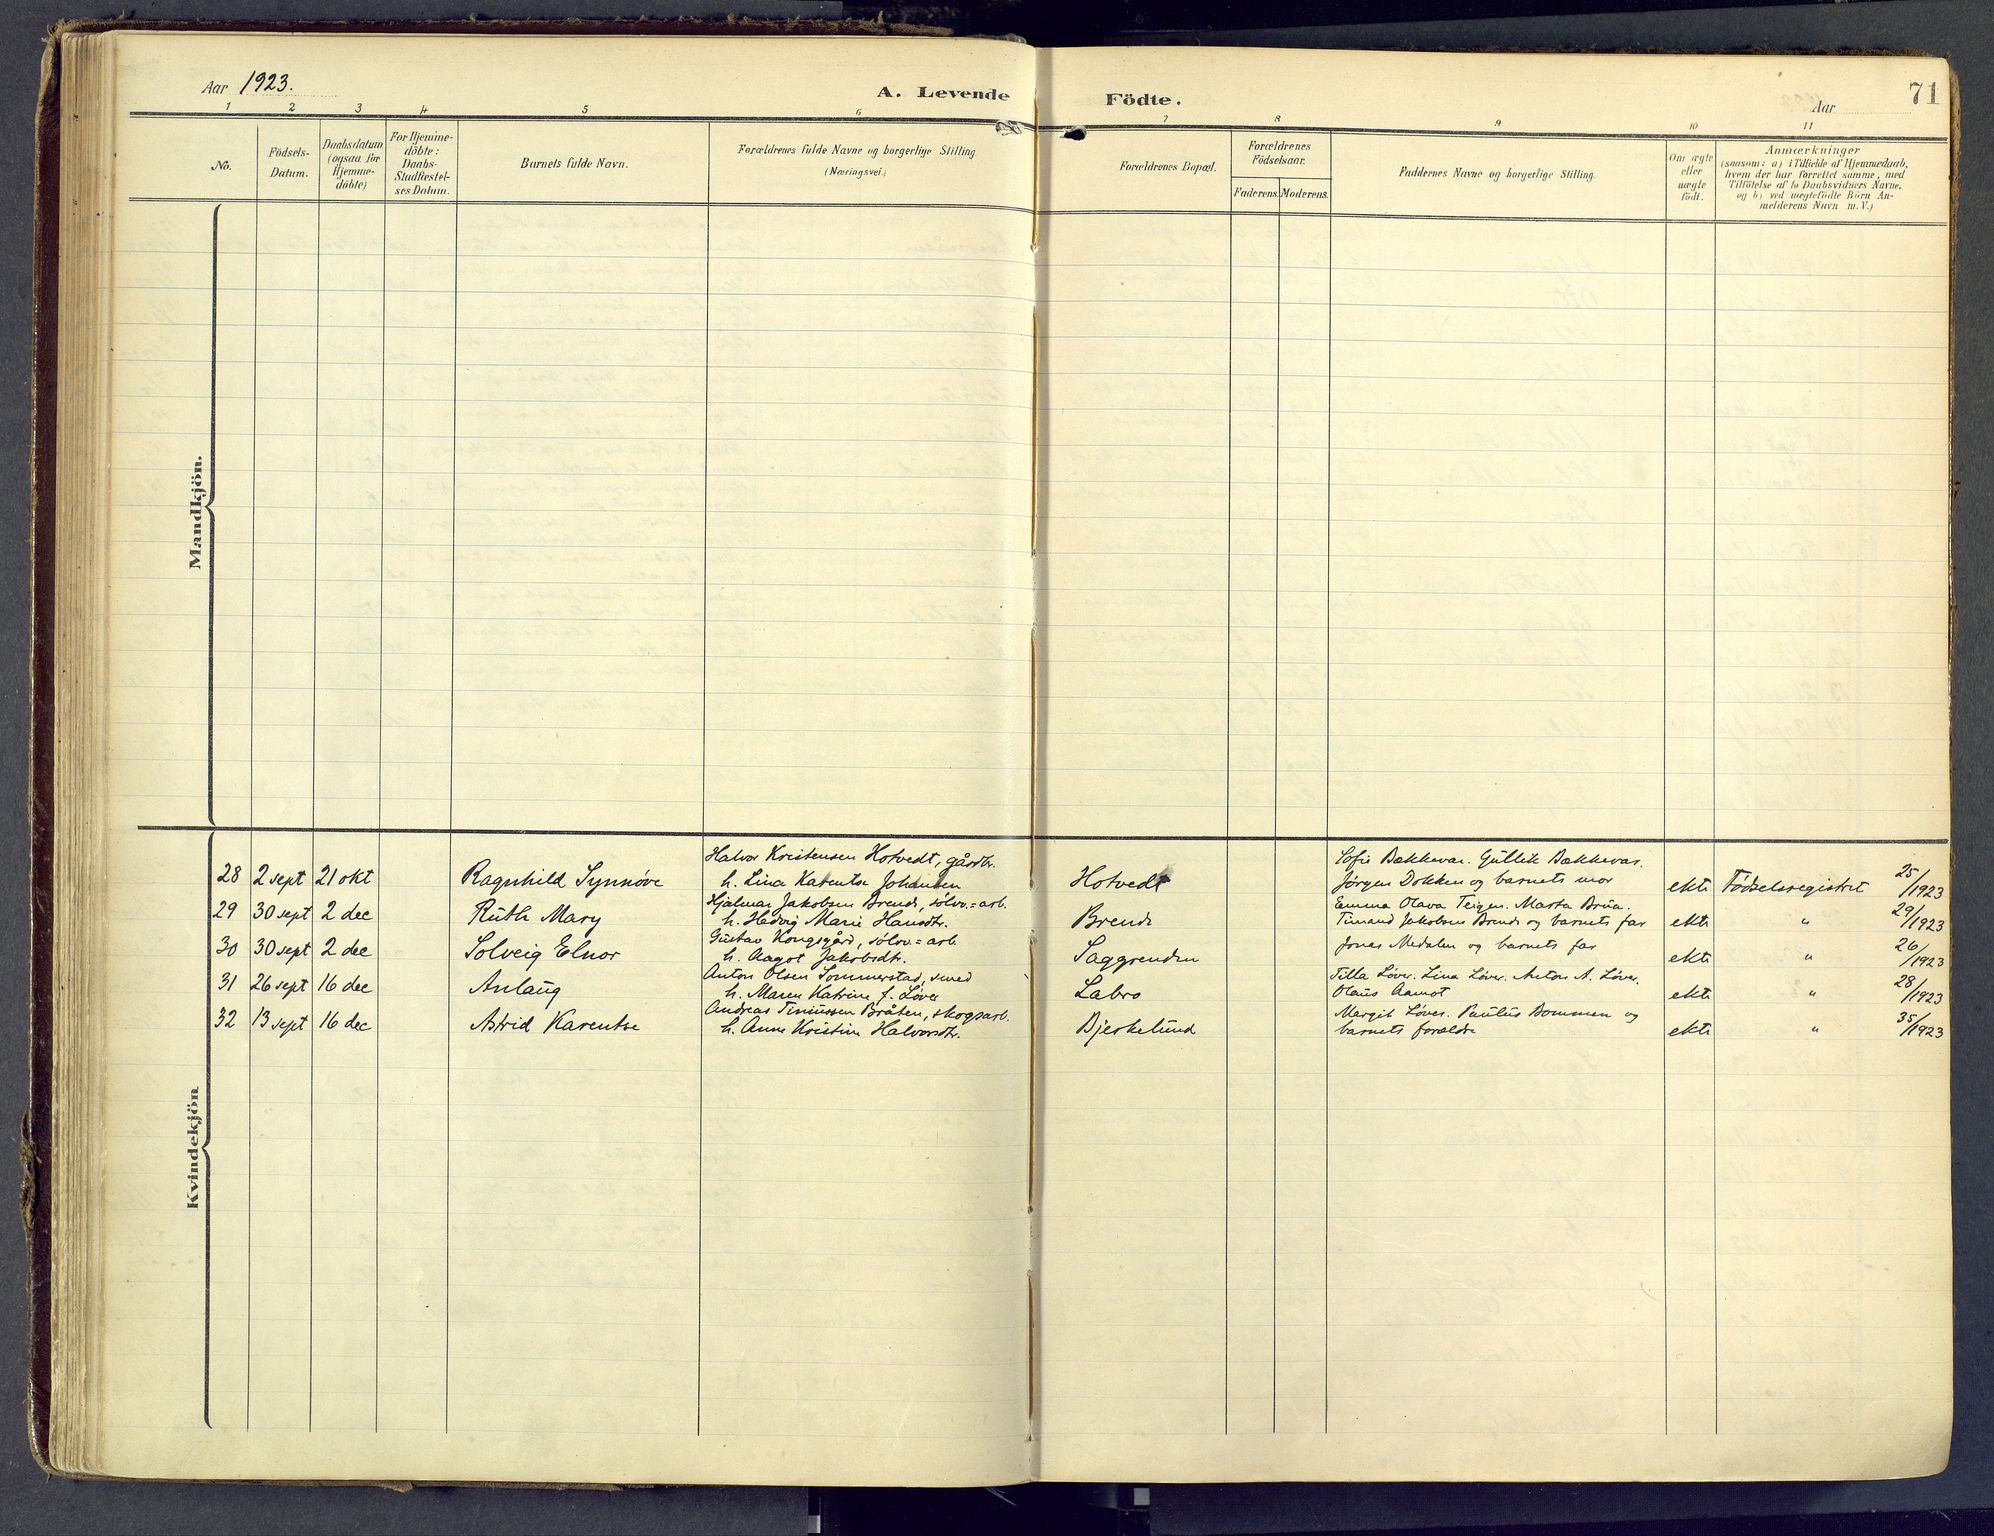 Aar 1923.
A. Levende Födte.
Aar
71
1 2 3 4 5 6 7 8 9 10 11
No.
Födsels-
Datum.
Daabsdatum
(ogsaa for
Hjemme-
döbte)
For Hjemme-
döbte:
Daabs-
Stadfæstel-
ses Datum.
Barnets fulde Navn.
Forældrenes fulde Navne og borgerlige Stilling
(Næringsvei.)
Forældrenes Bopæl.
Forældrenes
Födselsaar.
Faderens. Moderens.
Faddernes Navne og borgerlige Stilling.
Om ægte
eller
uægte
födt.
Anmærkninger
(saasom: a) i Tilfælde af Hjemmedaab,
hvem der har forrettet samme, med
Tilföielse af to Daabsvidners Navne,
og b) ved uægtefödte Börn An-
melderens Navn m. V.)
Mandkjön.
Kvindekjön
Halvor Kristensen Hotvedt, gårdbr.
28 2 sept 21 okt Ragnhild Synnøve h. Lina Karentse Johansen Hotvedt
Sofie Bækkevar. Gullik Bækkevar.
Jørgen Dokken og barnets mor ekte Fødselsregistret 25/1923
Hjalmar Jakobsen Brende, sølvv.=arb.
29 30 sept 2 dec Ruth Mary h. Hedvig Marie Hansdtr. Brende
Emma Olava Teigen. Marta Brua.
Timand Jakobsen Brende og barnets far ekte " 29/1923
Gustav Kongsgård, sølvv.=arb.
30 30 sept 2 dec Solveig Elnor h. Aagot Jakobsdtr. Saggrenden
Jonas Medalen og barnets far ekte " 26/1923
Anton Olsen Sommerstad, smed
31 26 sept 16 dec Anlaug h. Maren Katrine f. Løver Labro
Tilla Løver. Lina Løver. Anton A. Løver.
Olaus Aamot ekte " 28/1923
Andreas Timussen Bråten, skogsarb.
32 13 sept 16 dec Astrid Karentse h. Anne Kristine Halvorsdtr. Bjerkelund
Margit Løver. Paulus Bommen og
barnets forældre ekte " 35/1923